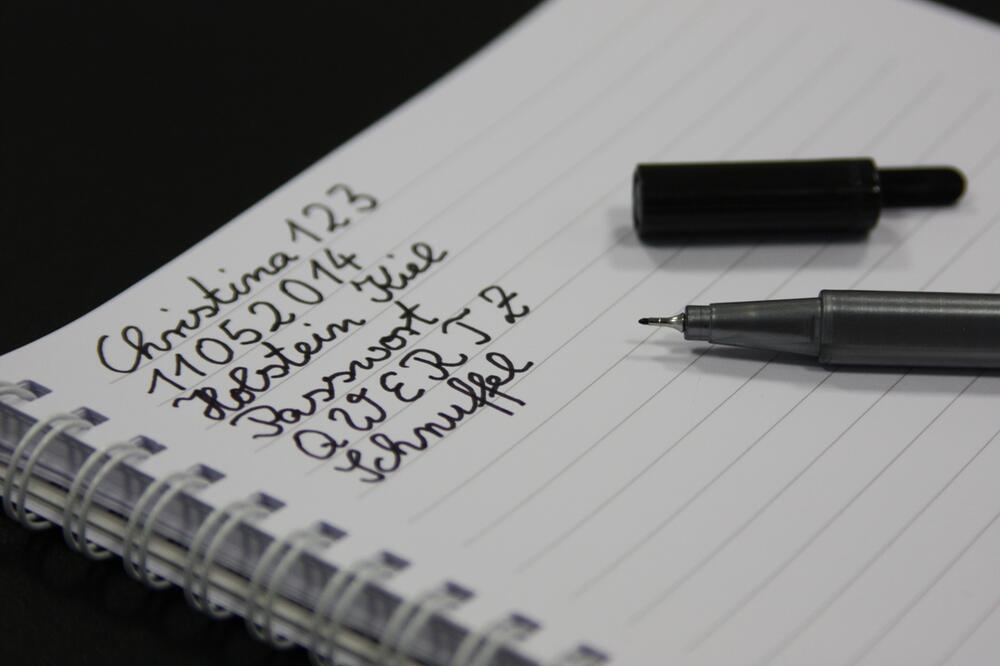 Christina 123
11052014
Holstein Kiel
Passwort
QWERTZ
Schnuffel